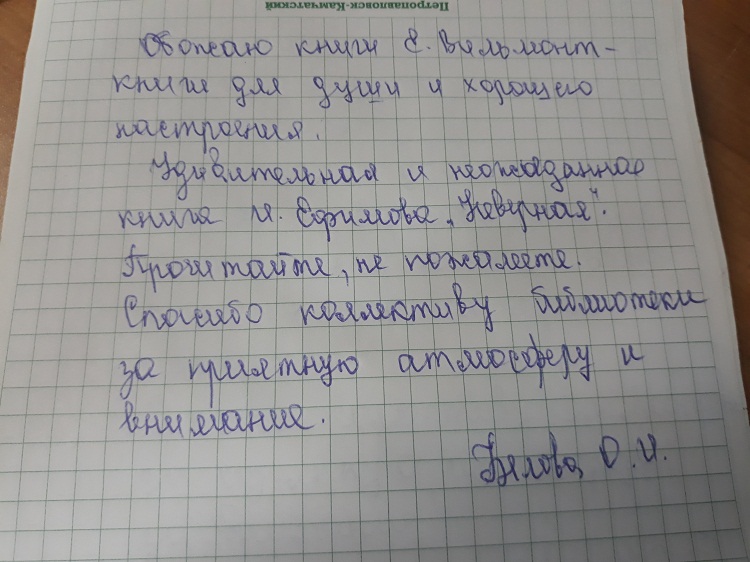 Петропавловск-Камчатский
Обожаю книги Е. Вильмонт-
книги для души и хорошего
настроения.
Удивительная и неожиданная
книга И. Ефимова „Неверная".
Прочитайте, не пожалеете.
Спасибо коллективу библиотеки
за приятную атмосферу и
внимание.
Белова О.И.